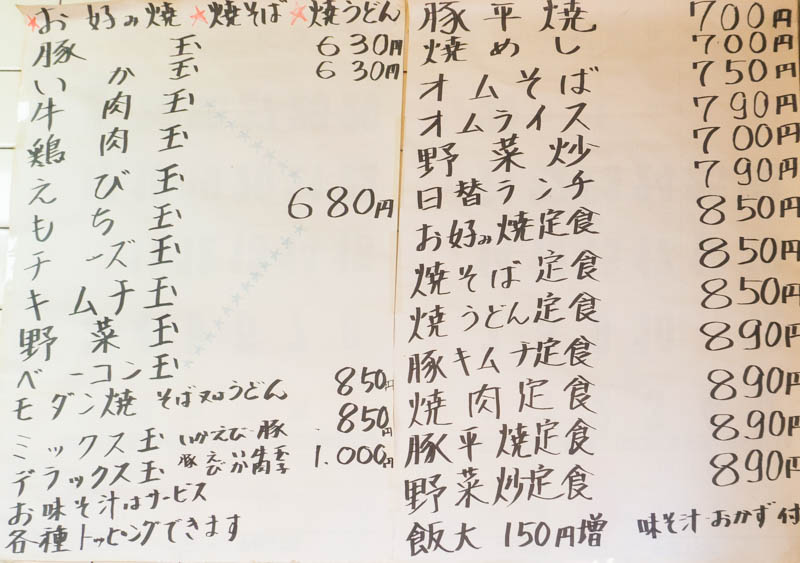 ★お好み焼 ★焼そば ★焼うどん
豚玉 630円
いか玉 630円
牛肉玉
鶏肉玉
えび玉
もち玉 680円
チーズ玉
キムチ玉
野菜玉
ベーコン玉
モダン焼 そば又はうどん 850円
ミックス玉 いかえび豚 850円
デラックス玉 豚えびいか 1.000円
お味そ汁はサービス
各種トッピングできます
豚平焼 700円
焼めし 700円
オムそば 750円
オムライス 790円
野菜炒 700円
日替ランチ 790円
お好み焼定食 850円
焼そば定食 850円
焼うどん定食 850円
豚キムチ定食 890円
焼肉定食 890円
豚平焼定食 890円
野菜炒定食 890円
飯大 150円増 味そ汁おかず付